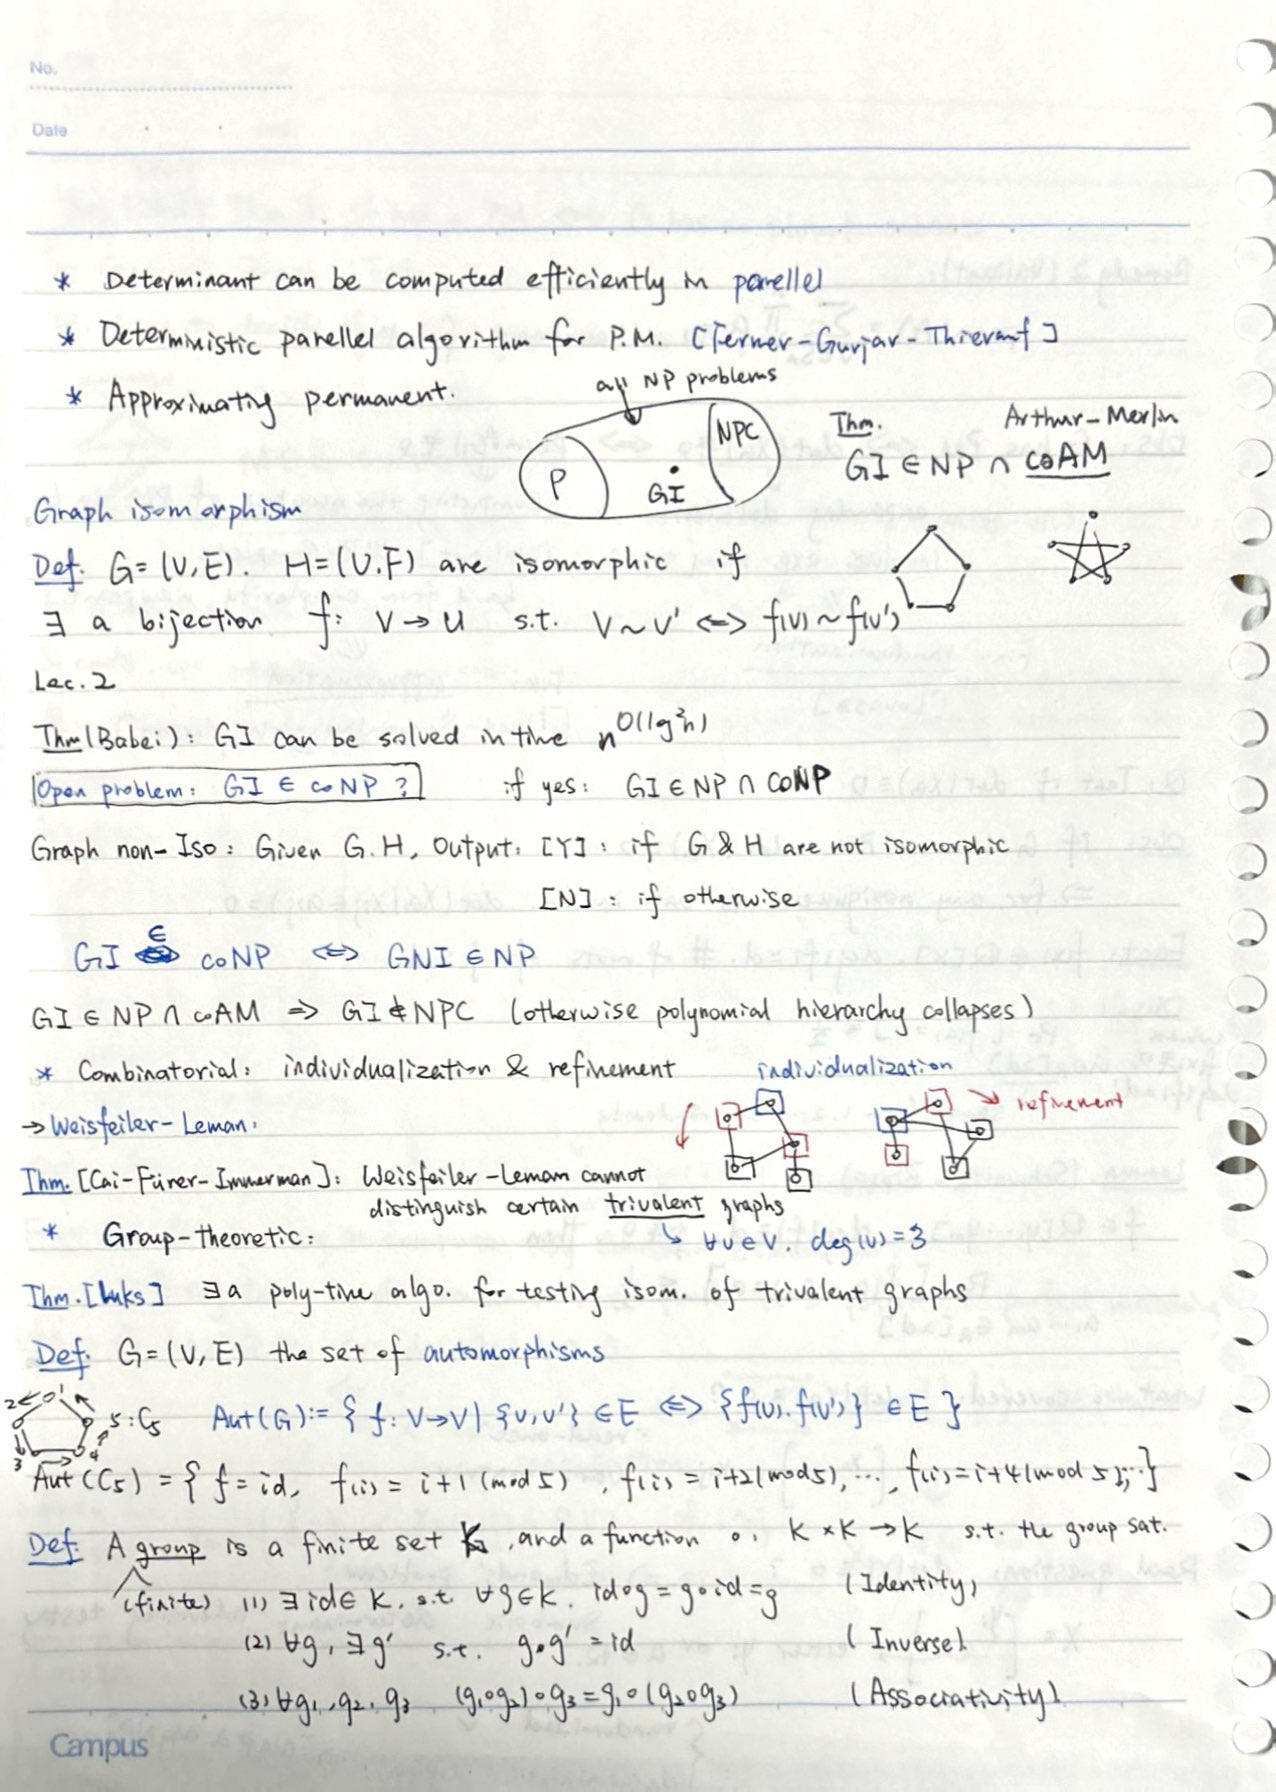 No.
Date
* Determinant can be computed efficiently in parellel
* Deterministic parellel algorithm for P.M. [Ferner-Gurjar-Thierauf]
* Approximating permanent.
all NP problems
P
GI
NPC
Thm.
Arthur-Merlin
GI ∈ NP ∩ coAM
Graph isomorphism
Def: G=(V,E). H=(U.F) are isomorphic if
∃ a bijection f: V→U s.t. V~V' ⇔ f(v)~f(v')
Lec.2
Thm(Babei): GI can be solved in time n^O(lg²n)
Open problem: GI ∈ coNP ?
if yes: GI ∈ NP ∩ coNP
Graph non-Iso: Given G.H, Output: [Y]: if G & H are not isomorphic
[N]: if otherwise
GI ∈ coNP ⇔ GNI ∈ NP
GI ∈ NP ∩ coAM ⇒ GI ∉ NPC (otherwise polynomial hierarchy collapses)
* Combinatorial: individualization & refinement
individualization
refinement
→ Weisfeiler-Leman:
Thm.[Cai-Fürer-Immerman]: Weisfeiler-Leman cannot
distinguish certain trivalent graphs
* Group-theoretic:
↳ ∀v∈V. deg(v)=3
Thm.[Luks] ∃ a poly-time algo. for testing isom. of trivalent graphs
Def: G=(V,E) the set of automorphisms
1
2
3
4
5 : C₅
Aut(G):= { f: V→V | {v,v'} ∈ E ⇔ {f(v).f(v')} ∈ E }
Aut(C₅) = { f=id, f(i)= i+1 (mod 5), f(i)= i+2(mod5), ..., f(i)=i+4(mod 5),...}
Def: A group is a finite set K, and a function ∘: K×K→K s.t. the group sat.
(finite) (1) ∃ id∈K, s.t. ∀g∈K. id∘g=g∘id=g (Identity)
(2) ∀g, ∃g' s.t. g∘g'=id (Inverse)
(3) ∀g₁,g₂,g₃ (g₁∘g₂)∘g₃=g₁∘(g₂∘g₃) (Associativity)
Campus